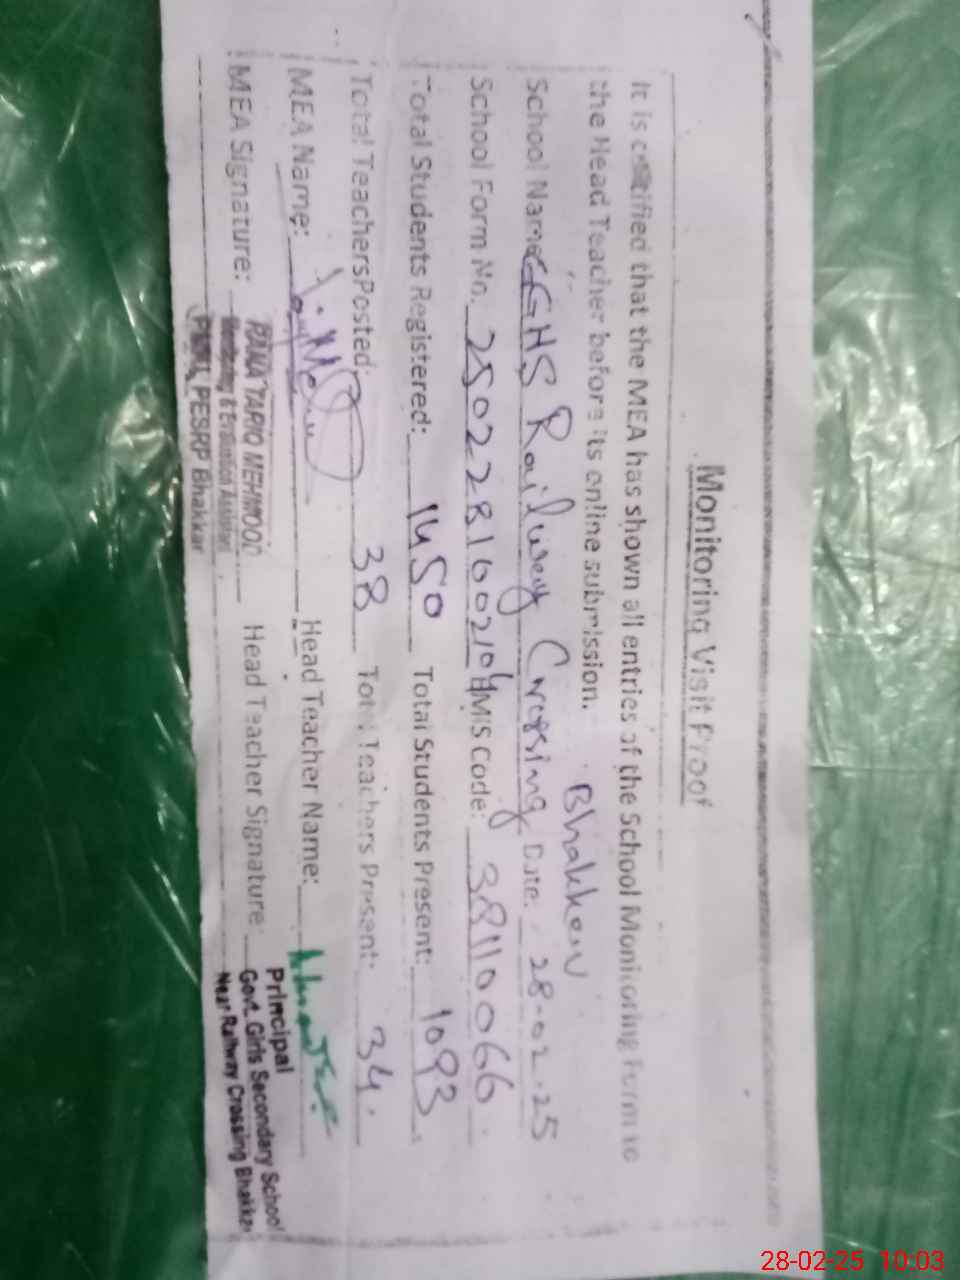 Monitoring Visit Proof
It is certified that the MEA has shown all entries of the School Monitoring Form to
the Head Teacher before its online submission. Bhakkar
School Name: GGHS Railway Crossing Date: 28-02-25
School Form No. 25022810021 EMIS Code: 38110066
Total Students Registered: 1450 Total Students Present: 1093
Total Teachers Posted: 38 Total Teachers Present: 34
MEA Name: Head Teacher Name:
MEA Signature: RANA TARIQ MEHMOOD Head Teacher Signature
Monitoring & Evaluation Assistant
PESRP Bhakkar
Principal
Govt. Girls Secondary School
Near Railway Crossing Bhakkar
28-02-25 10:03